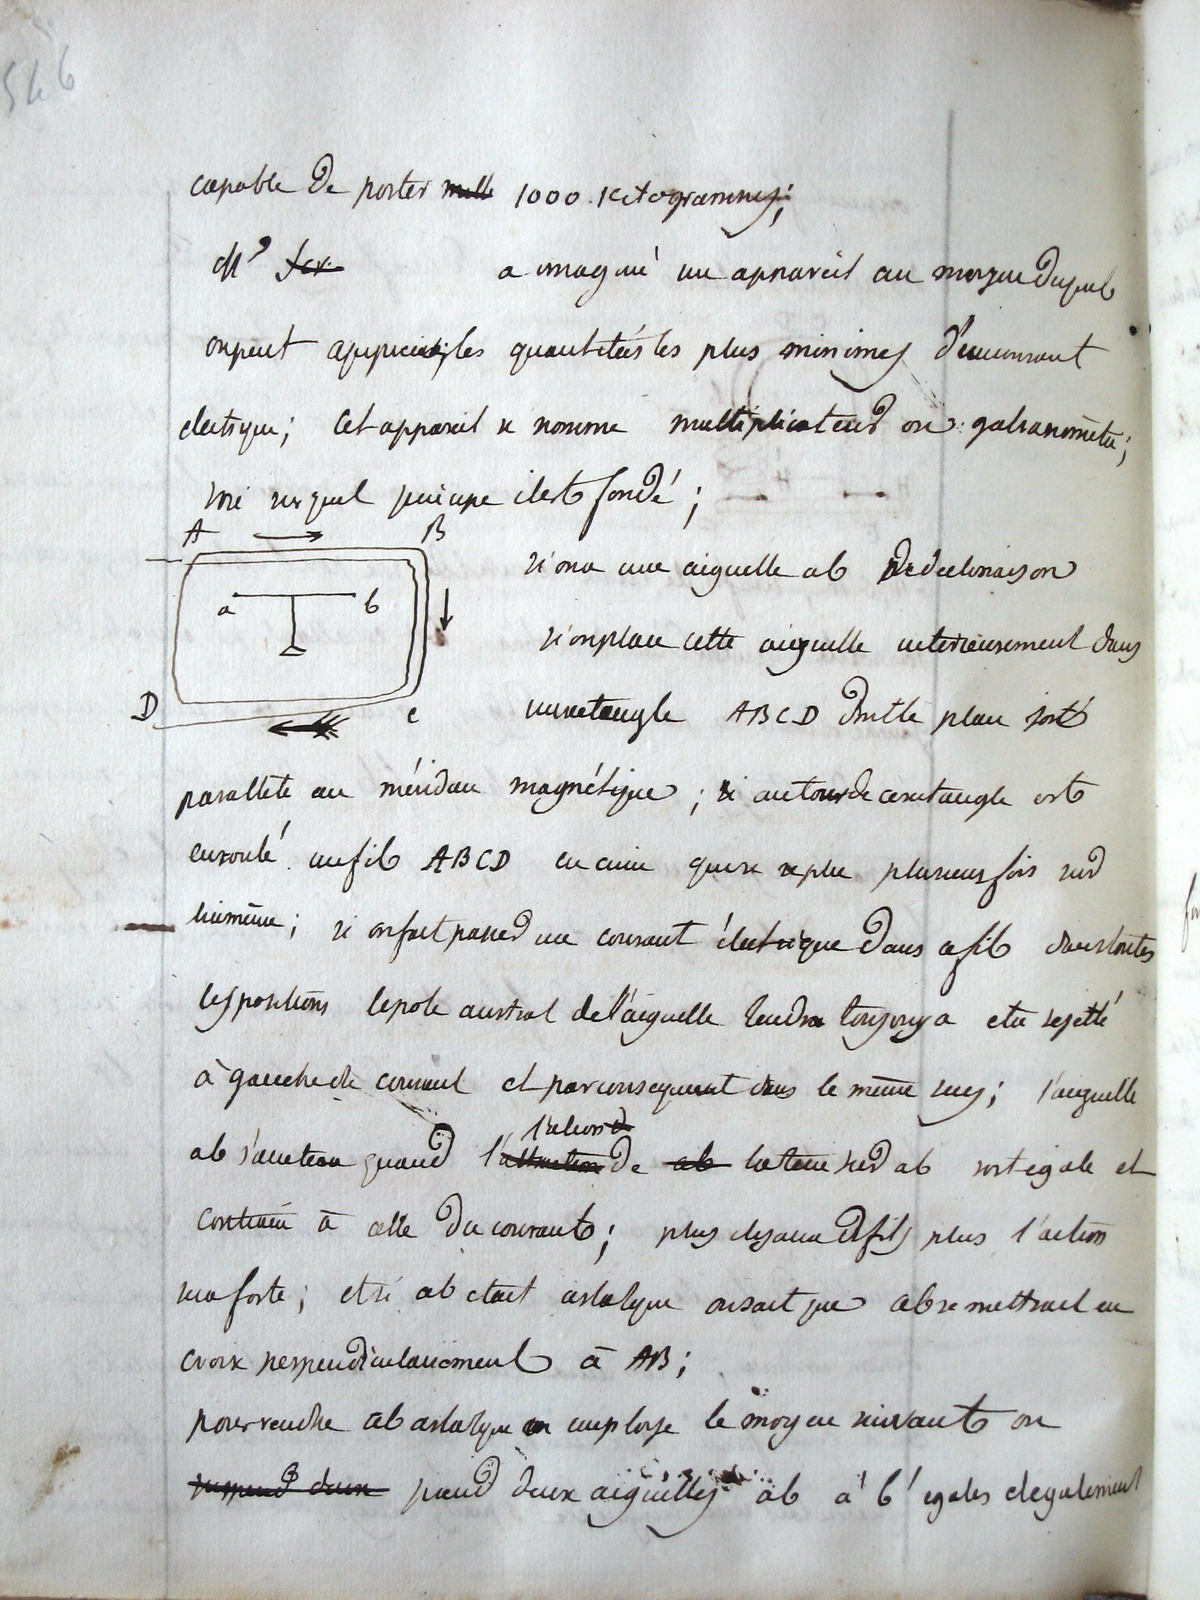 546
capable de porter mille 1000 kilogrammes;
Mr a imaginé un appareil au moyen duquel
on peut apprecier les quantités les plus minimes d'un courant
electrique; Cet appareil se nomme multiplicateur ou galvanomètre;
voici sur quel principe il est fondé;
A B
si on a une aiguelle ab de declinaison
a b
si on place cette aiguelle interieurement dans
D C
un rectangle ABCD dont le plan soit
parallele au méridien magnétique; si autour de ce rectangle est
enroulé un fil ABCD en cuivre qui se replie plusieurs fois sur
lui même; si on fait passer un courant électrique dans ce fil dans toutes
les positions le pole austral de l'aiguelle tendra toujours a etre rejetté
à gauche du courant et par consequent dans le même sens; l'aiguelle
l'action
ab s'arretera quand l'attraction de ab la terre sur ab sont egale et
contraire à celle du courant; plus il y aura de fils plus l'action
sera forte; et si ab etait astatique on sait que ab se mettrait en
croix perpendiculairement à AB;
pour rendre ab astatique on emploie le moyen suivant on
suspend deux prend deux aiguilles ab a' b' egales et egalement